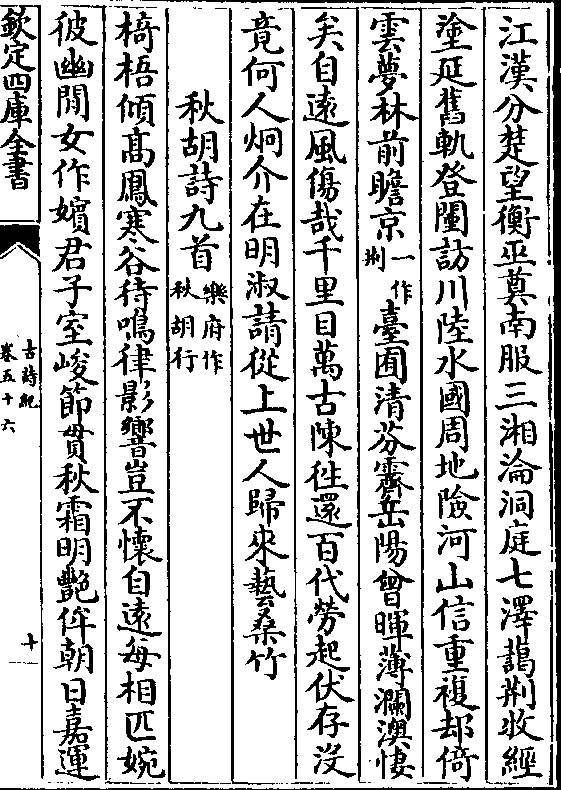 江漢分楚望衡巫奠南服三湘淪洞庭七澤藹荆牧經
塗延舊軌登闉訪川陸水國周地險河山信重複却倚
雲夢林前瞻京一作荆臺囿清芬霽岳陽曾暉薄瀾澳悽
矣自遠風傷哉千里目萬古陳徃還百代勞起伏存没
竟何人烱介在明淑請從上世人歸來藝桑竹
秋胡詩九首樂府作秋胡行
椅梧傾高鳳寒谷待鳴律影響豈不懷自遠每相匹婉
彼幽閒女作嬪君子室峻節貫秋霜明艷侔朝日嘉運
欽定四庫全書
古詩紀
卷五十六
十